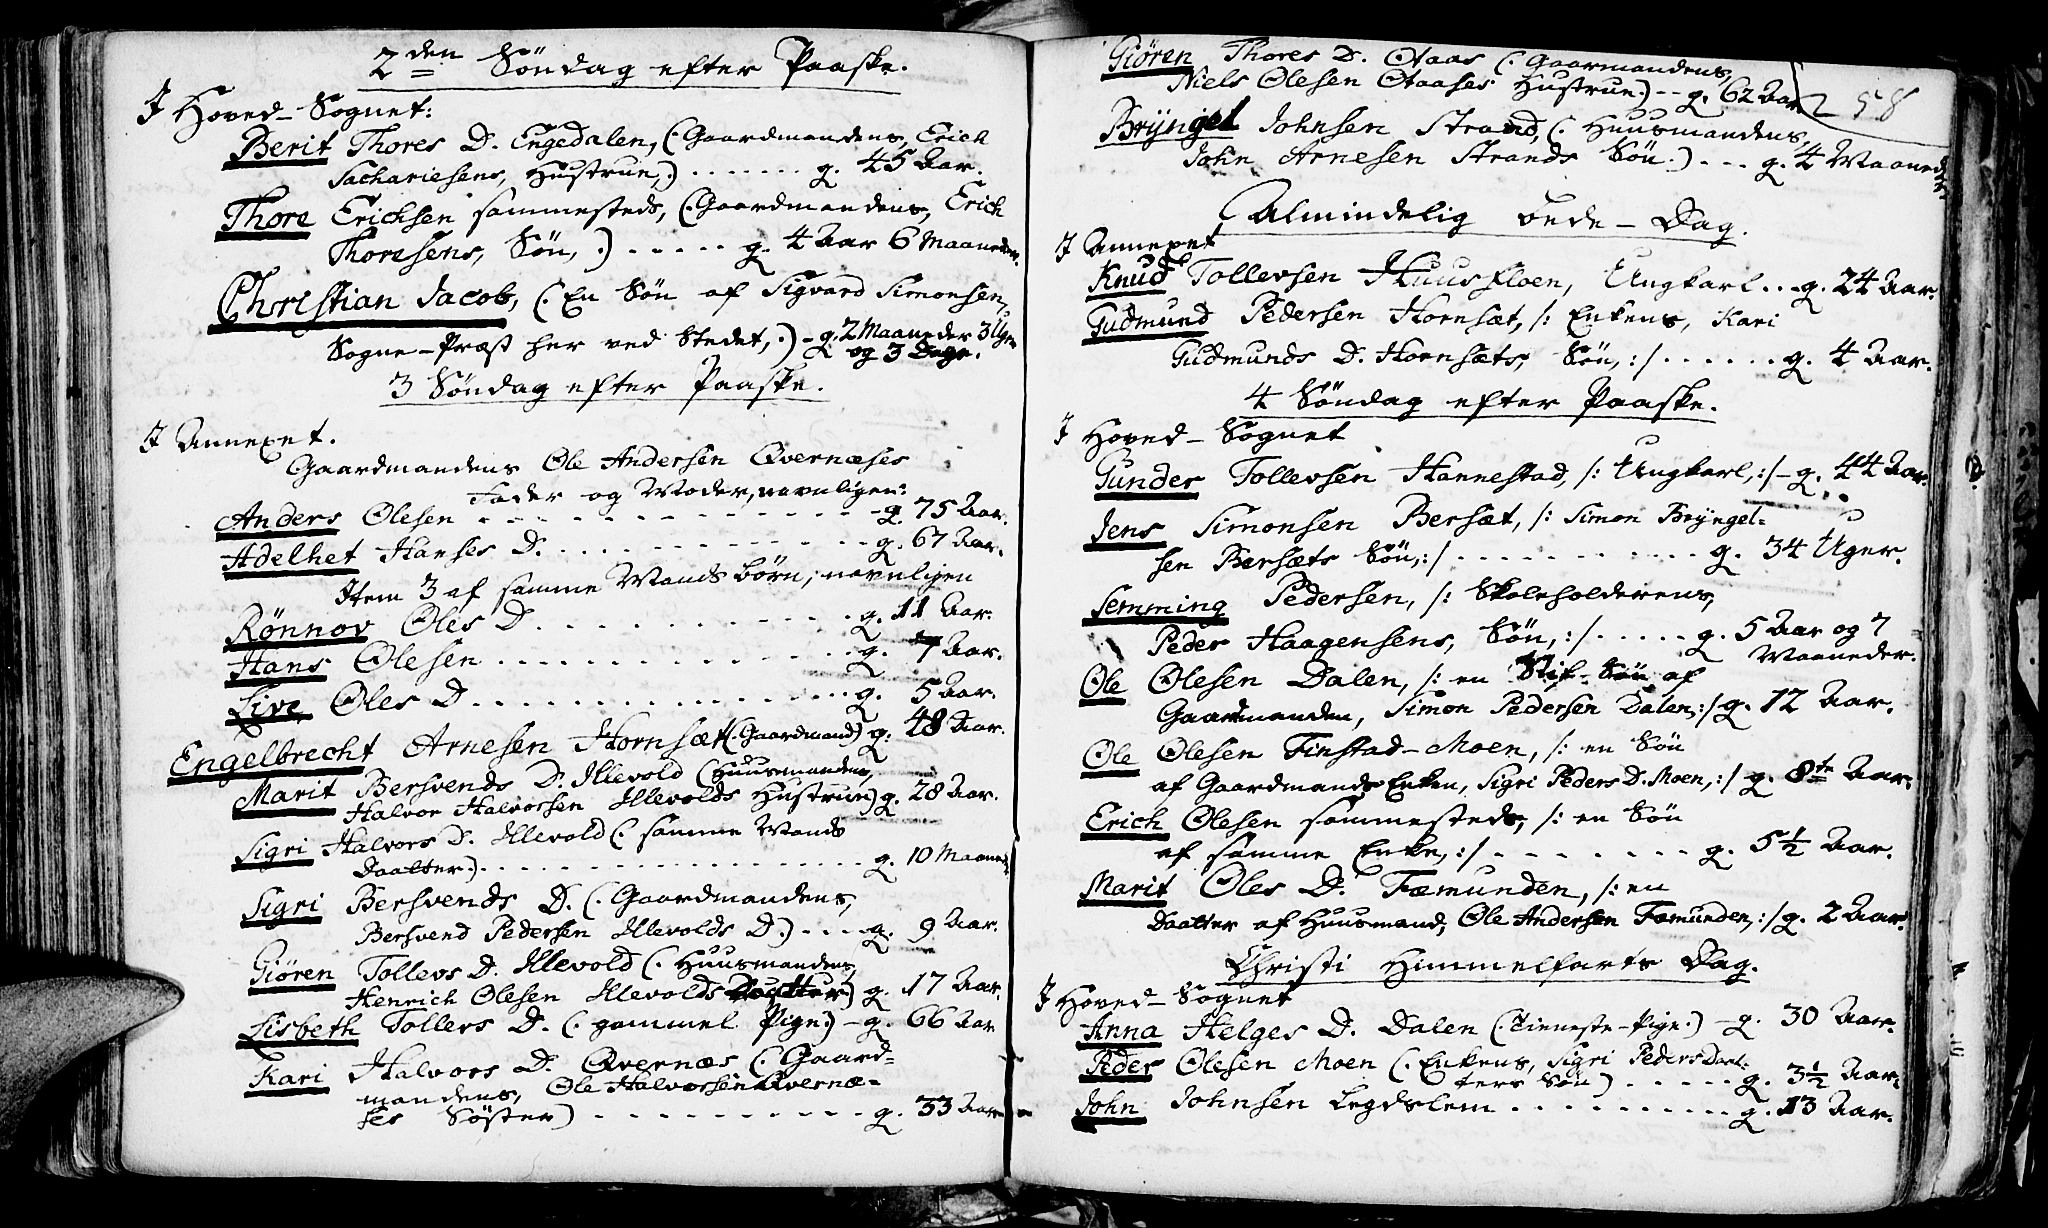 2den Söndag efter Paaske.
I Hoved-Sognet:
Berit Thores D. Engedalen, (: Gaardmandens, Erich
Sachariesens, Hustrue,) ....... g. 45 Aar.
Thore Erichsen sammesteds, (: Gaardmandens, Erich
Thoresens, Sön, :) ..... g. 4 Aar 6 Maaneder.
Christian Jacob, (: En Sön af Sigvard Simonsen,
Sogne-Præst her ved Stedet, :) - g. 2 Maaneder 3 Uger
og 3 Dage.
3 Söndag efter Paaske.
I Annexet.
Gaardmandens Ole Andersen Qvernæses
Fader og Moder, navnligen:
Anders Olesen - - - - - - - - g. 75 Aar.
Adelhet Hanses D. ............. g. 67 Aar.
Item 3 af samme Mands börn, navnligen
Rønnov Oles D. ............ g. 11 Aar.
Hans Olesen ............. g. 7 Aar.
Live Oles D ............. g. 5 Aar.
Engelbrecht Arnesen Hornsæt (: Gaardmand) g. 48 Aar.
Marit Bersvends D. Illevold (Huusmandens,
Halvor Halvorsen Illevolds Hustrue) g. 28 Aar.
Sigri Halvors D. Illevold (: samme Mands
Daatter.) - - - - - - - - - g. 10 Maaneder
Sigri Bersvends D. (: Gaardmandens,
Bersvend Pedersen Illevolds D.) - - - g. 9 Aar.
Giören Tollevs D. Illevold (: Huusmandens,
Henrich Olesen Illevolds Daatter) g. 17 Aar.
Lisbeth Tollevs D. (: gammel Pige:) - g. 66 Aar
Kari Halvors D. Qvernæs (: Gaard=
mandens, Ole Halvorsen Qvernæ=
ses Söster) - - - - - - - - - g. 33 Aar
Giören Thores D. Aaas (: Gaardmandens,
Niels Olesen Aaases Hustrue.) -- g. 62 Aar
258
Brÿngel Johnsen Strand, (: Huusmandens,
John Arnesen Strands Sön.) ... g. 4 Maaneder
Almindelig bede-Dag.
I Annexet
Knud Tollevsen Huusfloen, Ungkarl .. g. 24 Aar.
Gudmund Pedersen Hornsæt, /: Enkens, Kari
Gudmunds D. Hornsæts, Sön, :/ ...... g. 4 Aar.
4 Söndag efter Paaske.
I Hoved-Sognet
Gunder Tollevsen Hannestad, /: Ungkarl, :/ - g. 44 Aar.
Jens Simonsen Bersæt, /: Simon Brÿngel=
sen Bersæts Sön, :/ - - - - - - - - g. 34 Uger.
Semming Pedersen, /: Skoleholderens,
Peder Haagensens, Sön, :/ ..... g. 5 Aar og 7
Maaneder.
Ole Olesen Dalen, /: en Stif-Sön af
Gaardmanden, Simon Pedersen Dalen, :/ g. 12 Aar.
Ole Olesen Finstad-Moen, /: en Sön
af Gaardmands Enken, Sigri Peders D. Moen, :/ g. 8te Aar.
Erich Olesen sammesteds, /: en Sön
af samme Enke, :/ - - - - - - - - g. 5 1/2 Aar.
Marit Oles D. Fæmunden, /: en
Daatter af Huusmand, Ole Andersen Fæmunden, :/ g. 2 Aar.
Christi Himmelfarts Dag.
I Hoved-Sognet
Anna Helges D. Dalen (: Tieneste-Pige.) - g. 30 Aar.
Peder Olesen Moen (: Enkens, Sigri Peders Daat-
ters Sön) ..... g. 3 1/2 Aar.
John Johnsen Legdslem .......... g. 13 Aar.